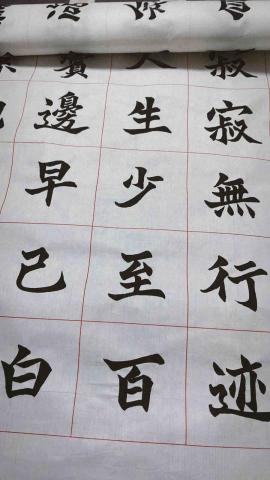 寂寂無行迹
人生少至百
邊早己白